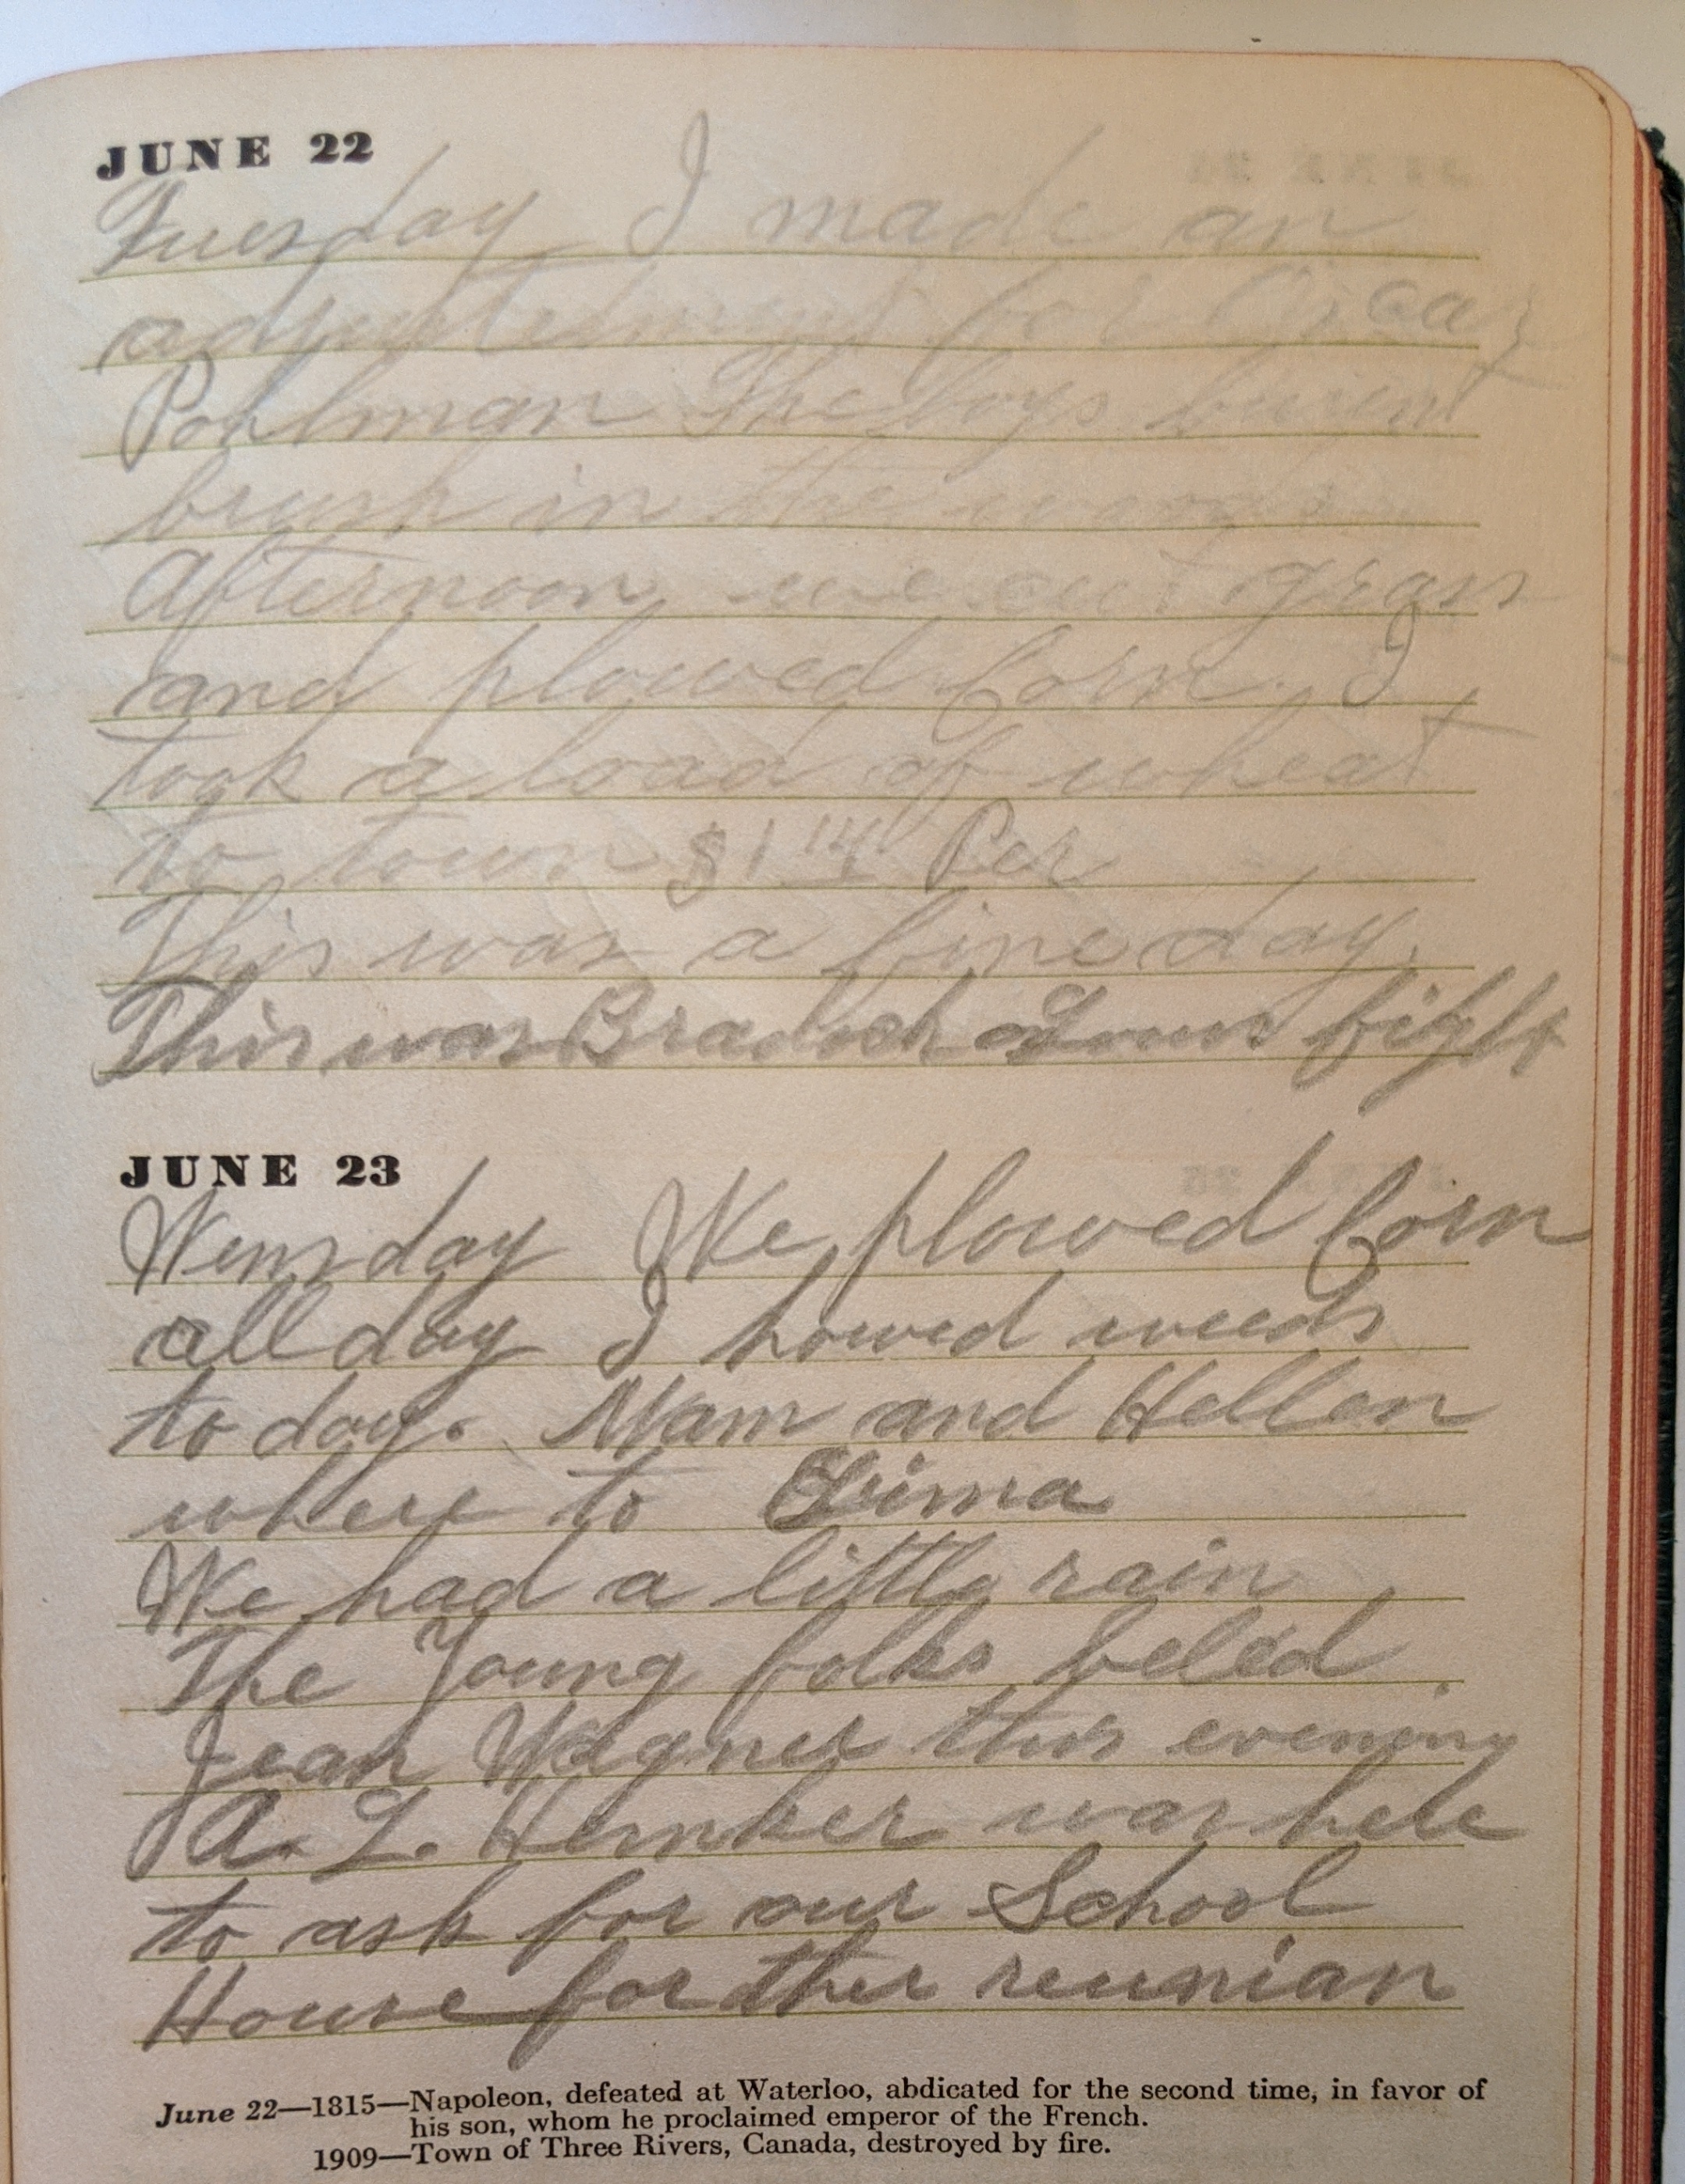 JUNE 22
Tuesday I made an
adjustement for Oscar
Pohlman The boys burent
brush in the woods
Afternoon we cut grass
and plowed Corn. I
took a load of wheat
to town $1 14 Per
This was a fine day.
This was Bradoch Lous fight
JUNE 23
Wensday We plowed Corn
all day I howed weeds
to day. Mam and Hellen
where to Lima
We had a little rain
The Young folks beled
Jean Wagner this evening
A. L. Hemker was here
to ask for our School
House for ther reunian
June 22—1815—Napoleon, defeated at Waterloo, abdicated for the second time, in favor of
his son, whom he proclaimed emperor of the French.
1909—Town of Three Rivers, Canada, destroyed by fire.